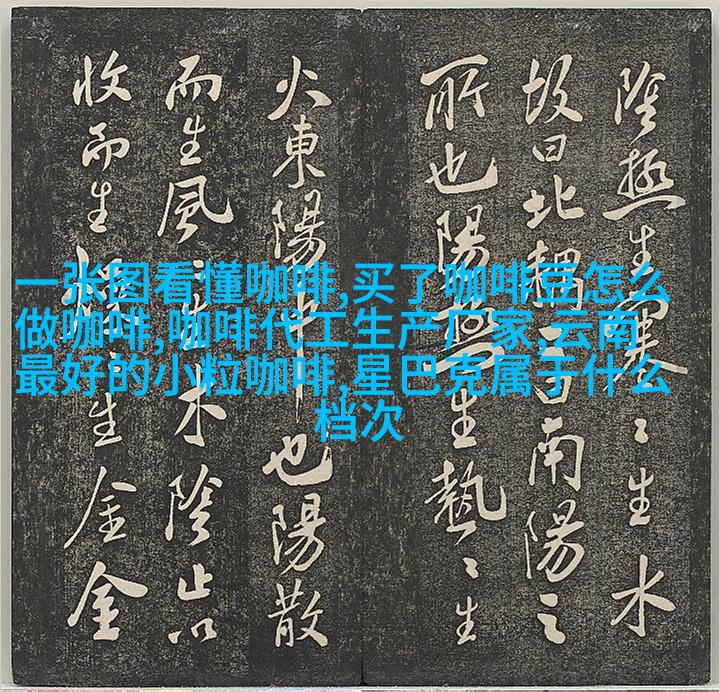 一张图看懂咖啡,买了咖啡豆怎么
做咖啡,咖啡代工生产厂家,云南
最好的小粒咖啡,星巴克属于什么
档次
陰極生寒〻生水
故曰北南陽之
所也陽生熱〻生
火東陽中也陽散
而生風〻生木陰止以
收而生生金金